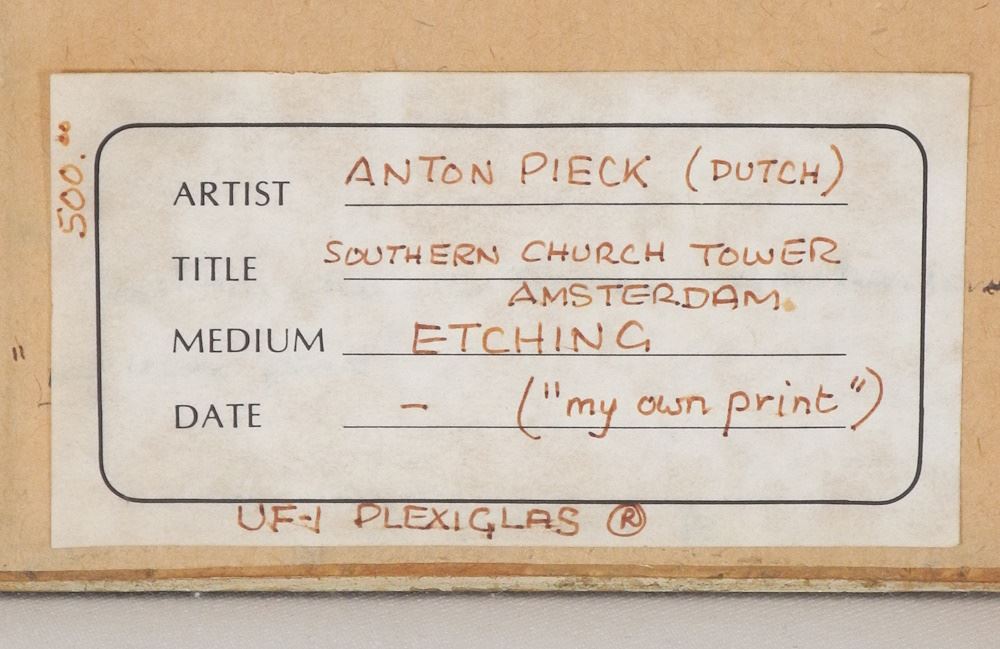 500.00
ARTIST ANTON PIECK (DUTCH)
TITLE SOUTHERN CHURCH TOWER
AMSTERDAM.
MEDIUM ETCHING
DATE - ("my own print")
UF-1 PLEXIGLAS ®